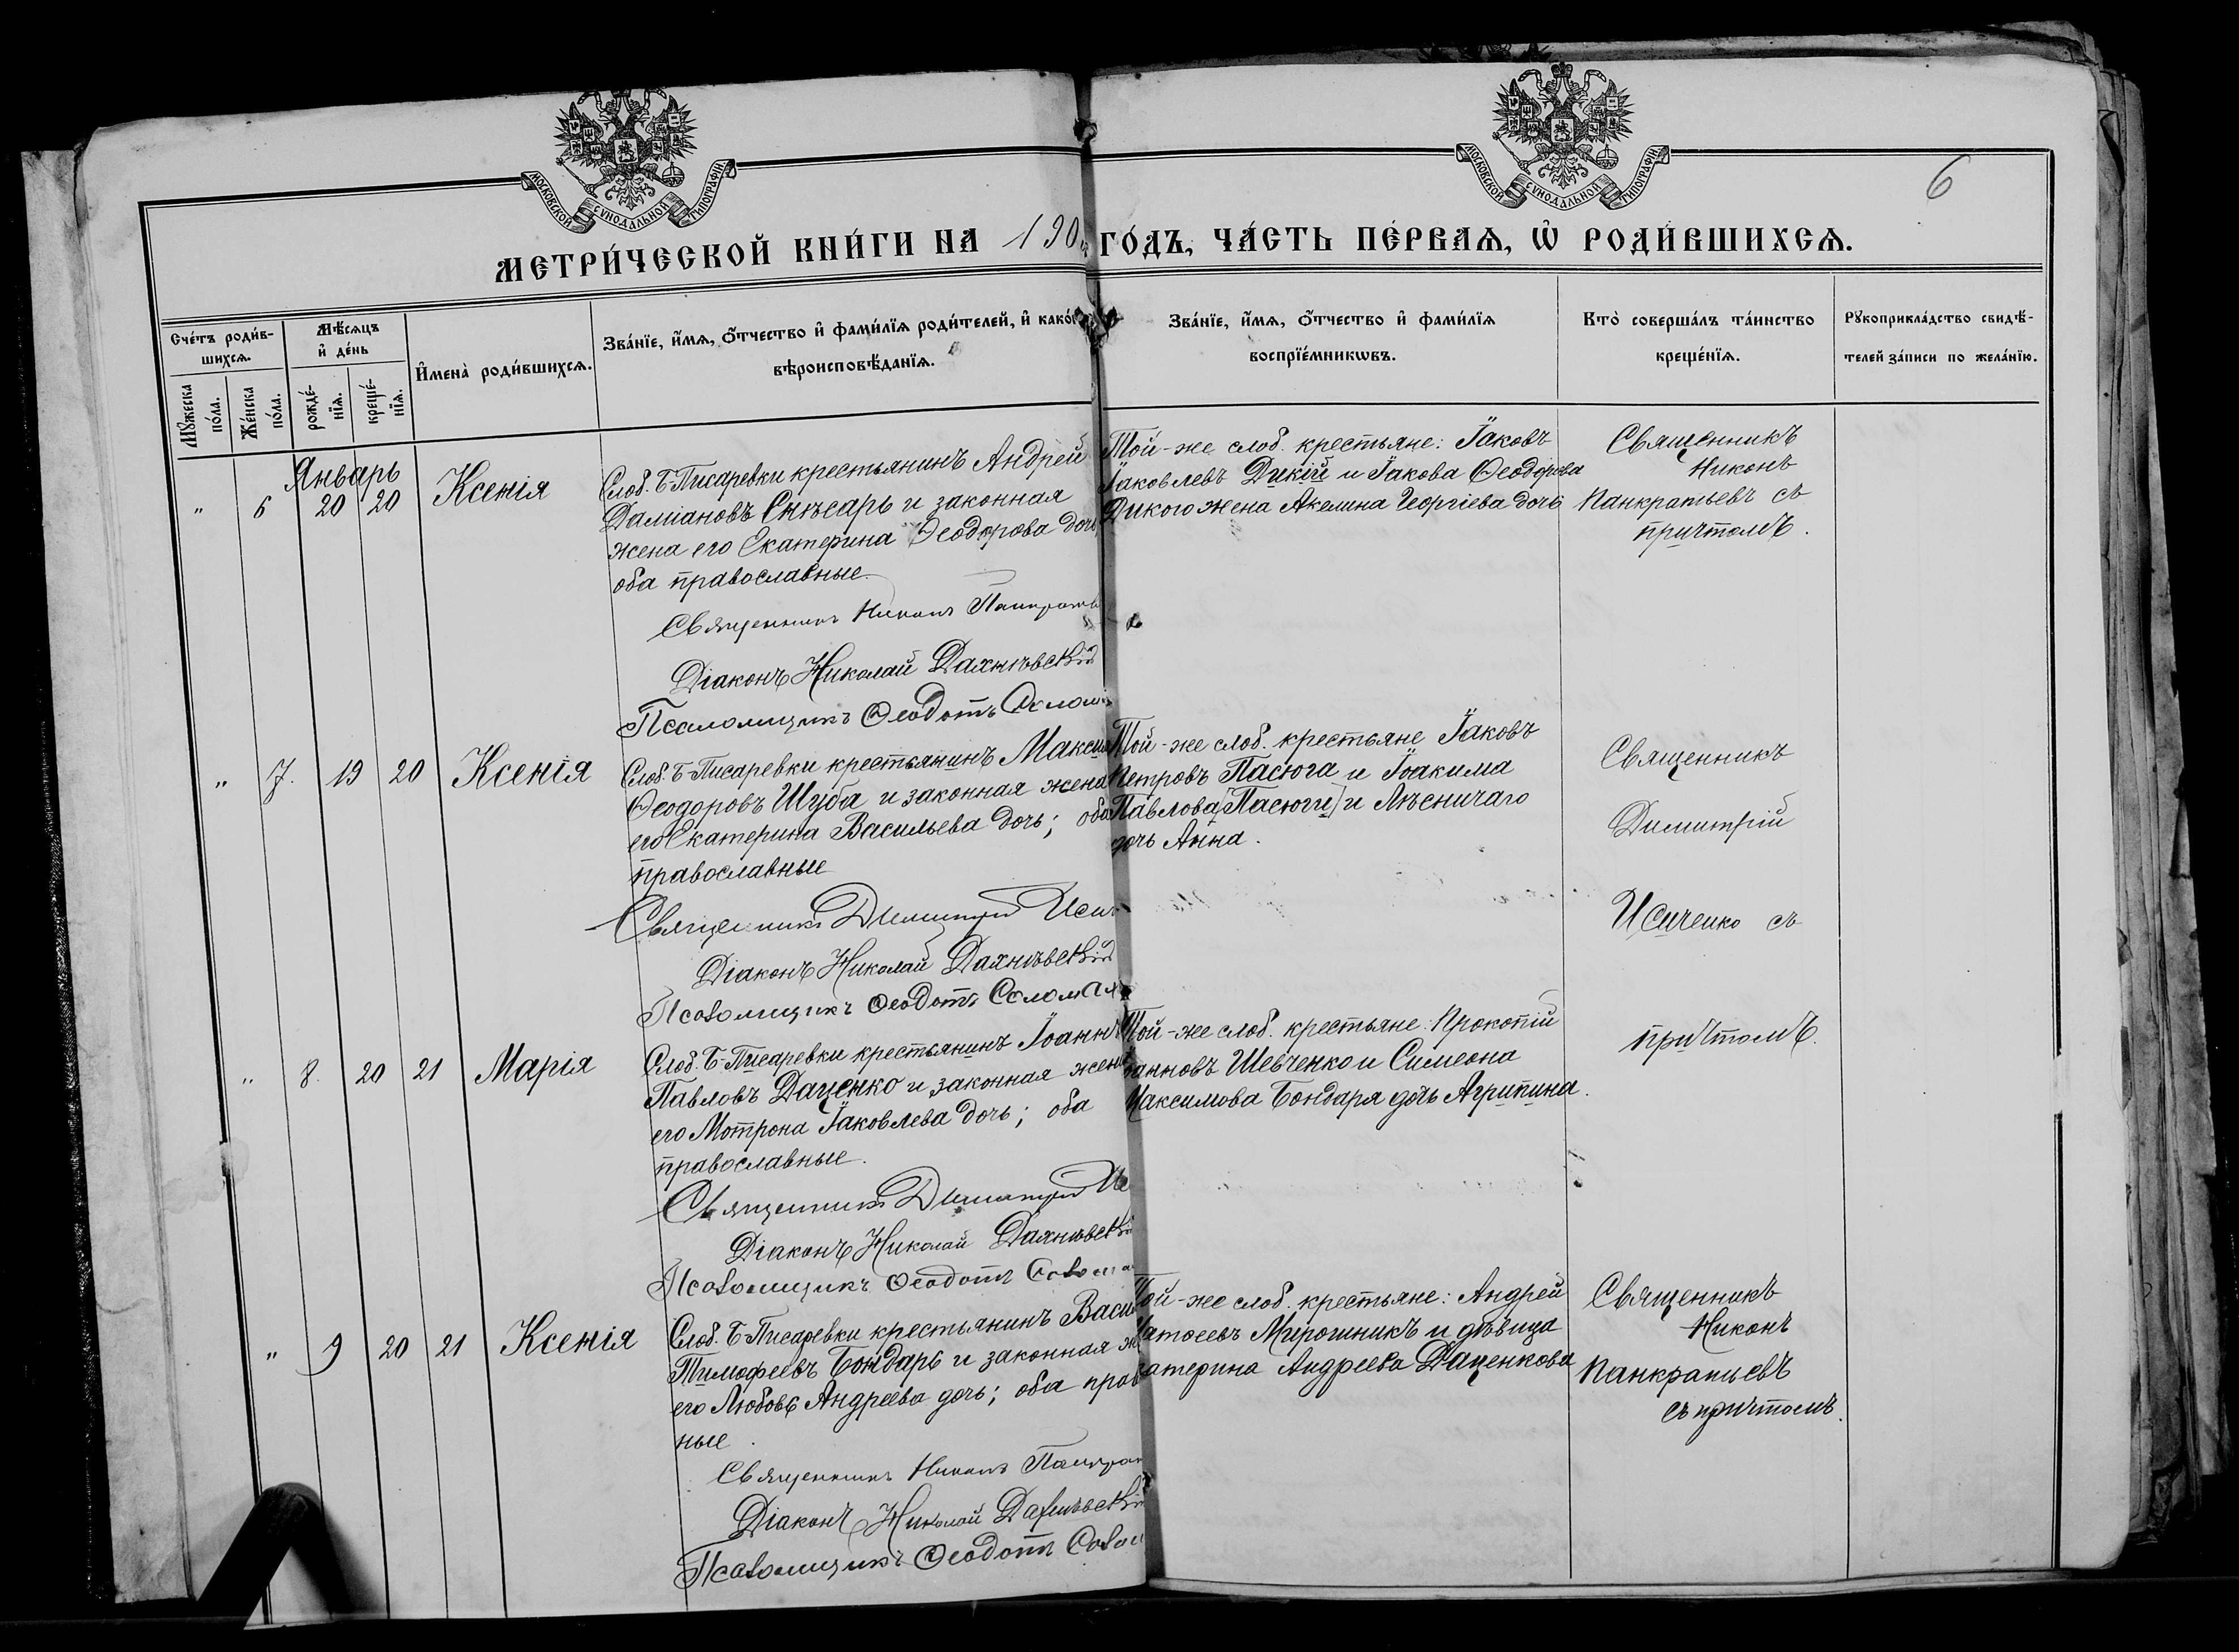 МОСКОВСКОЙ СѴНОДАЛЬНОЙ ТИПОГРАФІИ
МОСКОВСКОЙ СѴНОДАЛЬНОЙ ТИПОГРАФІИ
6
МЕТРИ́ЧЕСКОЙ КНИ́ГИ НА 190
ГО́ДЪ, ЧА́СТЬ ПЕ́РВАѦ, Ѡ҆ РОДИ́ВШИХСѦ.
Сче́тъ роди́в-
шихсѧ.
Мꙋ́жеска по́ла.
Же́нска по́ла.
Мѣ́сѧцъ
и҆ де́нь
рожде́-нїѧ.
креще́-нїѧ.
И҆мена̀ роди́вшихсѧ.
Зва́нїе, и҆́мѧ, ѻ҆́тчество и҆ фами́лїѧ роди́телей, и҆ како́г
вѣроисповѣ́данїѧ.
Зва́нїе, и҆́мѧ, ѻ҆́тчество и҆ фами́лїѧ
воспрїе́мникѡвъ.
Кто̀ соверша́лъ та́инство
креще́нїѧ.
Рꙋкоприкла́дство свидѣ́-
телей за́писи по жела́нїю.
Январь
" 6 20 20 Ксенія
Слоб. Б-Писаревки крестьянинъ Андрей
Даміановъ Снѣсарь и законная
жена его Екатерина Ѳеодорова дочь
оба православные.
Священникъ Никонъ Панкрать
Діаконъ Николай Дахнѣвскій
Псаломщикъ Ѳеодотъ Солом
Той-же слоб. крестьяне: Іаковъ
Іаковлевъ Дикій и Іакова Ѳеодорова
Дикого жена Акелина Георгіева дочь
Священникъ
Никонъ
Панкратьевъ съ
причтомъ.
" 7. 19 20 Ксенія
Слоб. Б-Писаревки крестьянинъ Макси
Ѳеодоровъ Шуба и законная жена
его Екатерина Васильева дочь; оба
православные
Священникъ Димитрій Иси
Діаконъ Николай Дахнѣвскій
Псаломщикъ Ѳеодотъ Солома
Той-же слоб. крестьяне Іаковъ
Петровъ Пасюга и Іоакима
Павлова [Пасюги] и Лѣсничаго
дочь Анна.
Священникъ
Димитрій
Исиченко съ
причтомъ.
" 8. 20 21 Марія
Слоб. Б-Писаревки крестьянинъ Іоаннъ
Павловъ Даценко и законная жена
его Мотрона Іаковлева дочь; оба
православные.
Священникъ Димитрій Ис
Діаконъ Николай Дахнѣвскі
Псаломщикъ Ѳеодотъ Солома
Той-же слоб. крестьяне Прокопій
Іоанновъ Шевченко и Симеона
Максимова Бондаря дочь Агрипина.
" 9 20 21 Ксенія
Слоб. Б-Писаревки крестьянинъ Васи
Тимофеевъ Бондарь и законная же
его Любовь Андреева дочь; оба прав
ные.
Священникъ Никонъ Панкрат
Діаконъ Николай Дахнѣвскій
Псаломщикъ Ѳеодотъ Солом
Той-же слоб. крестьяне: Андрей
Матѳеевъ Мірошникъ и дѣвица
катерина Андреева Даценкова
Священникъ
Никонъ
Панкратьевъ
съ причтомъ.